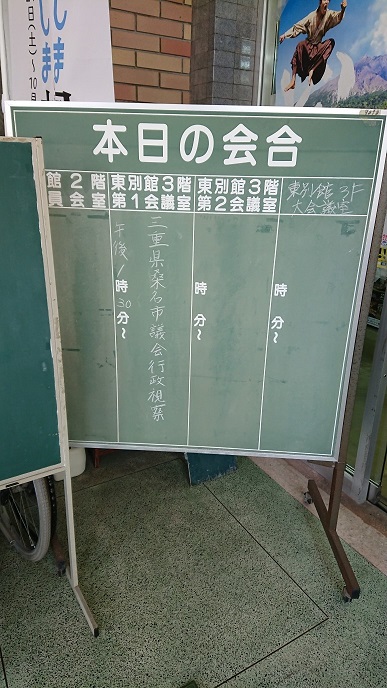 本日の会合
館2階
員会室
東別館3階
第1会議室
東別館3階
第2会議室
東別館3F
大会議室
午後1時30分~
三重県桑名市議会行政視察
時 分~
時 分~
しま
日(土)~10月